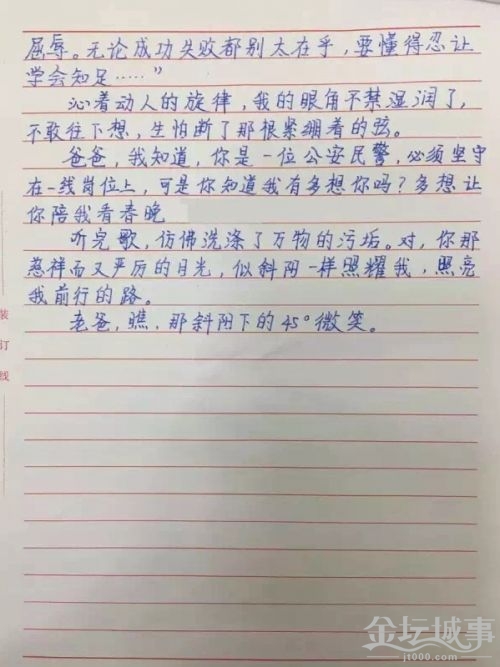 屈辱。无论成功失败都别太在乎，要懂得忍让
学会知足……”
沁着动人的旋律，我的眼角不禁湿润了，
不敢往下想，生怕断了那根紧绷着的弦。
爸爸，我知道，你是一位公安民警，必须坚守
在一线岗位上，可是你知道我有多想你吗？多想让
你陪我看春晚
听完歌，仿佛洗涤了万物的污垢。对，你那
慈祥而又严厉的目光，似斜阳一样照耀我，照亮
我前行的路。
老爸，瞧，那斜阳下的45°微笑。
装
订
线
金坛城事
jt000.com